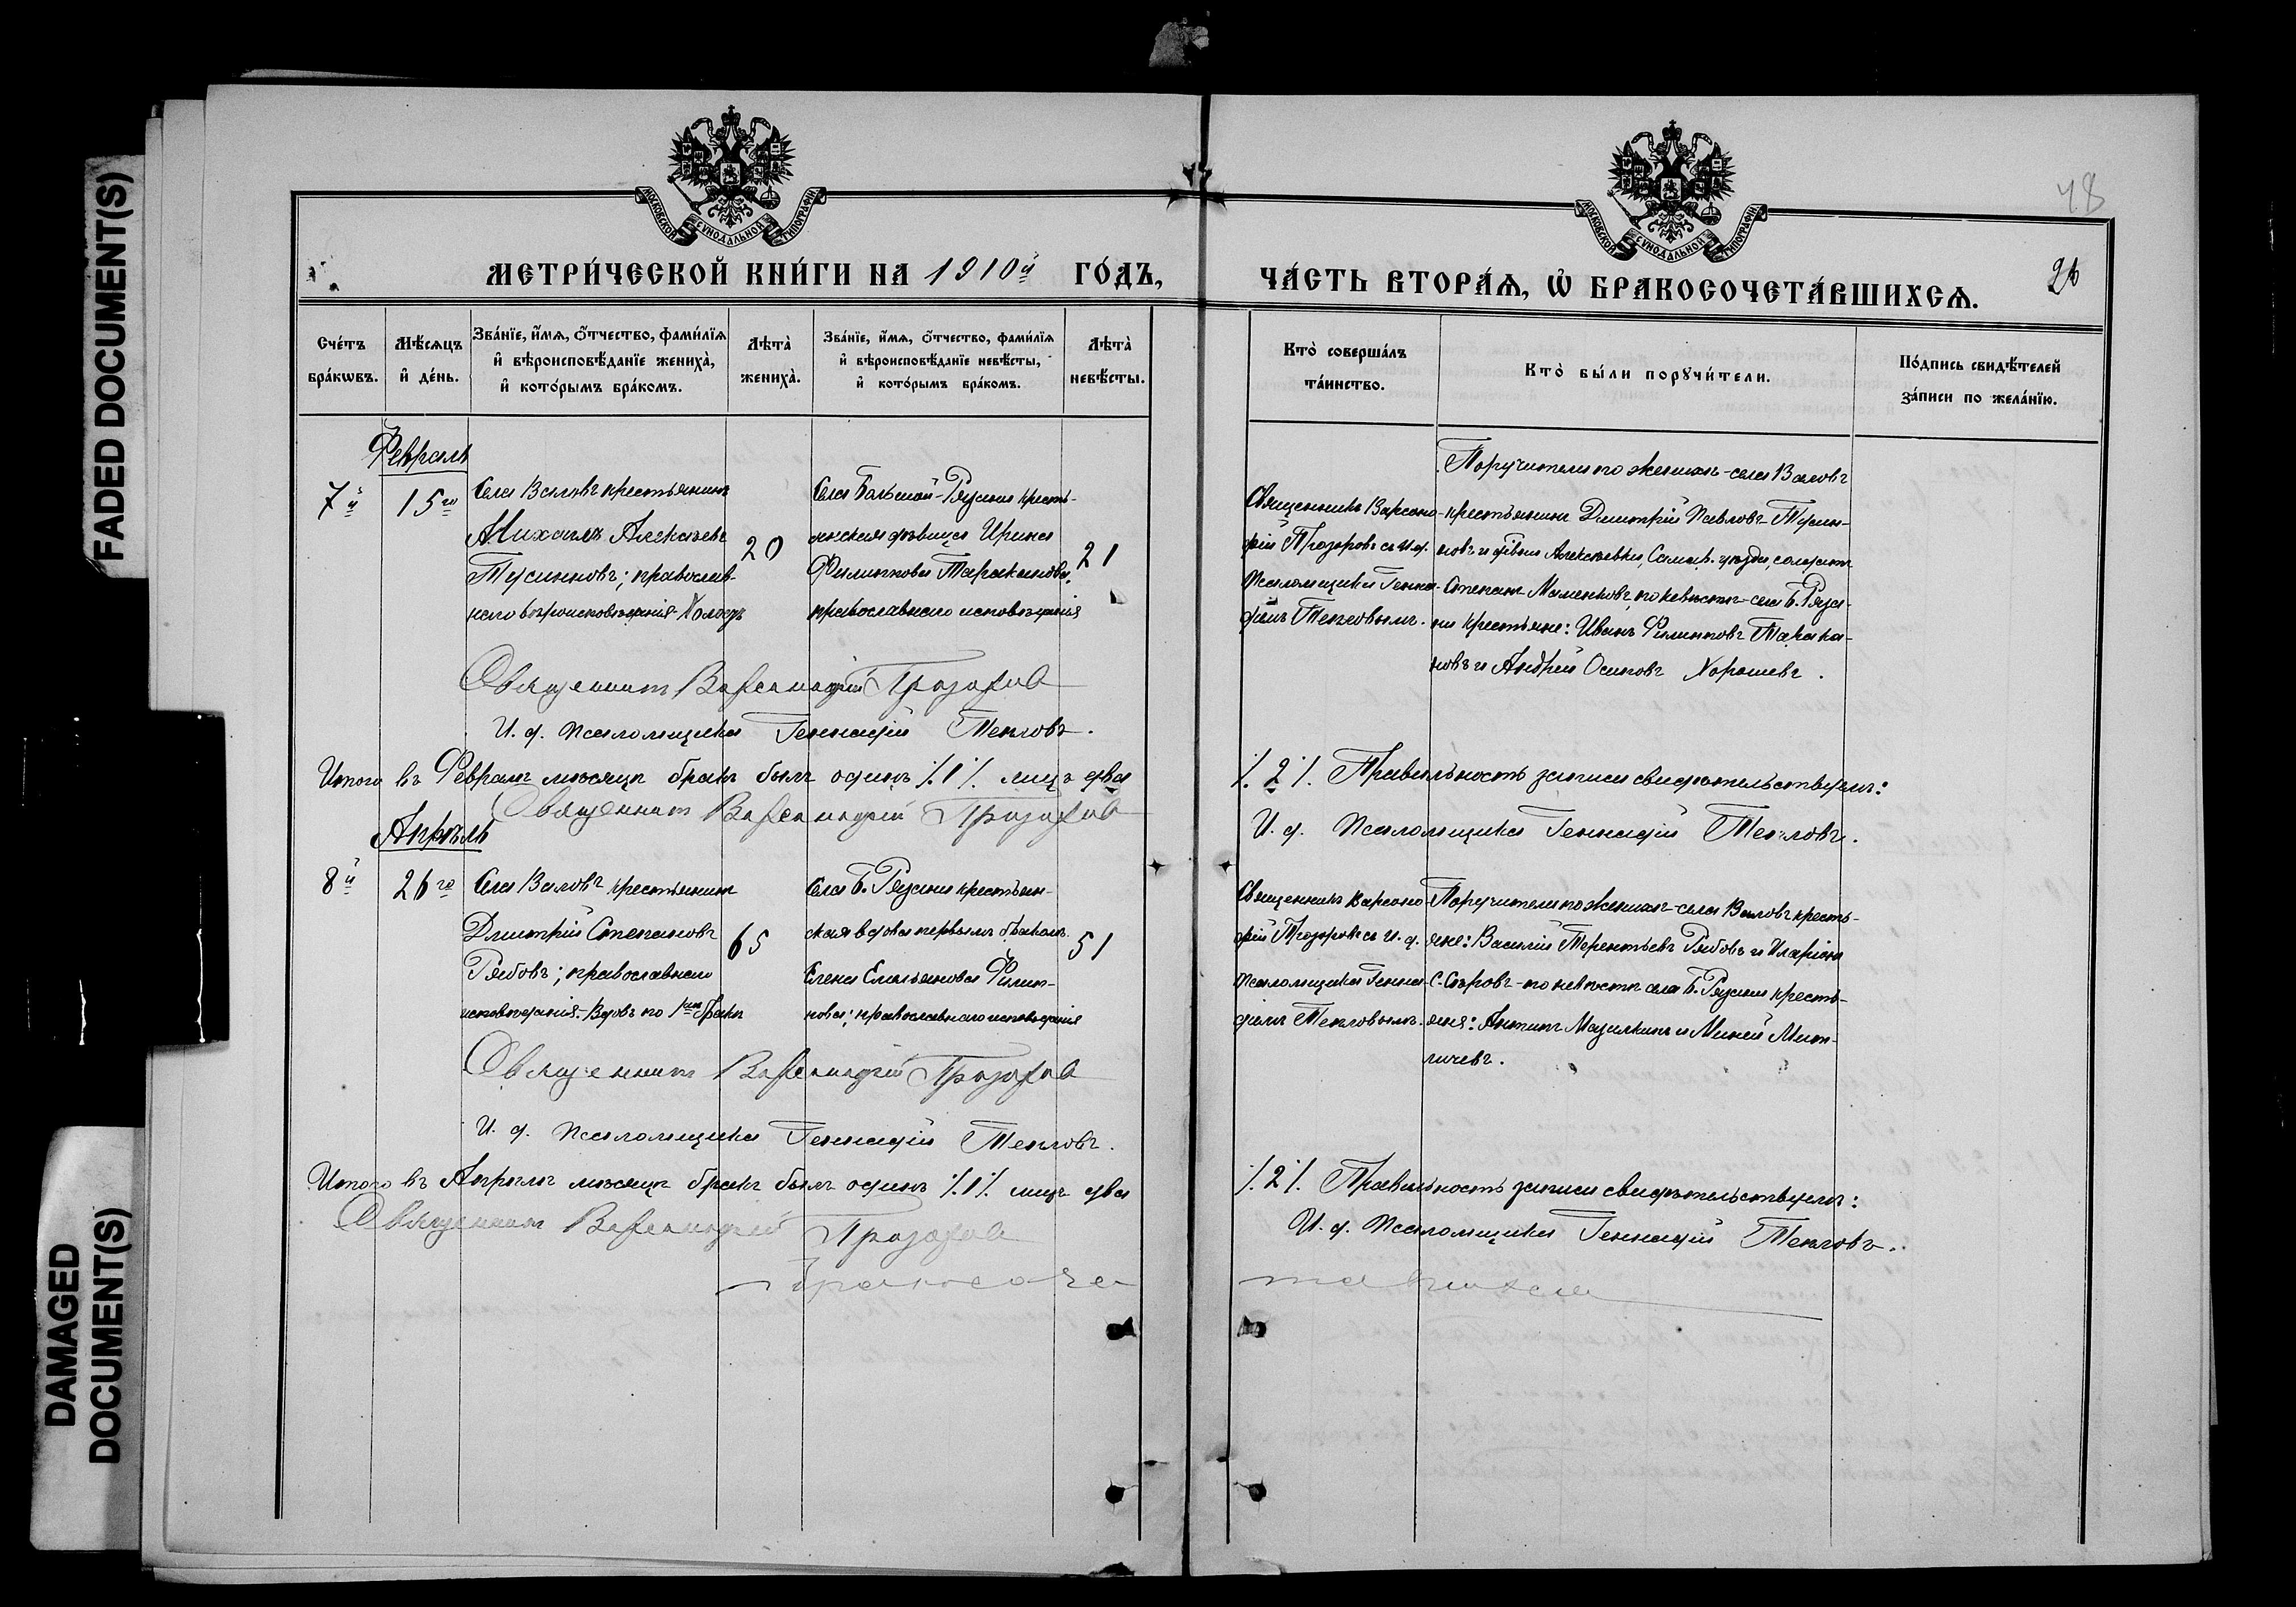 FADED DOCUMENT(S)
DAMAGED
DOCUMENT(S)
МОСКОВСКОЙ СѴНОДАЛЬНОЙ ТИПОГРАФІИ
МЕТРИ́ЧЕСКОЙ КНИ́ГИ НА 1910й ГО́ДЪ,
Сче́тъ
бра́кωвъ.
Мѣ́сяцъ
и҆ де́нь.
Зва́нїе, и҆́мѧ, ѻ҆́тчество, фами́лїѧ
и҆ вѣроисповѣ́данїе жениха̀,
и҆ кото́рымъ бра́комъ.
Лѣ́та̀
жениха̀.
Зва́нїе, и҆́мѧ, ѻ҆́тчество, фами́лїѧ
и҆ вѣроисповѣ́данїе невѣ́сты,
и҆ кото́рымъ бра́комъ.
Лѣ́та̀
невѣ́сты.
Февраль
7й
15го
Села Валовъ крестьянинъ
Михаилъ Алексѣевъ
Тусиновъ; православ-
наго вѣроисповѣданія. Холостъ
20
Села Большой-Рязани кресть-
янская дѣвица Ирина
Филиппова Тараканова,
православнаго исповѣданія
21
Священникъ Варсанофій Прозоровъ
И. д. псаломщика Геннадій Тепловъ.
Итого въ Февралѣ мѣсяцѣ бракъ былъ одинъ ⁒1⁒ лицъ два
Священникъ Варсанофій Прозоровъ
Апрѣль
8й
26го
Села Валовъ крестьянинъ
Дмитрій Степановъ
Рябовъ; православнаго
исповѣданія. Вдовъ по 1мъ бракѣ
65
Села Б. Рязани крестьян-
ская вдова первымъ бракомъ
Елена Емельянова Филип-
пова; православнаго исповѣданія
51
Священникъ Варсанофій Прозоровъ
И. д. псаломщика Геннадій Тепловъ.
Итого въ Апрѣлѣ мѣсяцѣ бракъ былъ одинъ ⁒1⁒ лицъ два
Священникъ Варсанофій Прозоровъ
бракосоче
48
МОСКОВСКОЙ СѴНОДАЛЬНОЙ ТИПОГРАФІИ
ЧА́СТЬ ВТОРА́Ѧ, Ѽ БРАКОСОЧЕТА́ВШИХСѦ.
26
Кто̀ соверша́лъ
та́инство.
Кто̀ бы́ли порꙋчи́тели.
По́дпись свидѣ́телей
за́писи по жела́нїю.
Священникъ Варсоно-
фій Прозоровъ съ И. д.
псаломщика Генна-
діемъ Тепловымъ.
Поручители по женихѣ - села Валовъ
крестьянинъ Дмитрій Павловъ Тусин-
новъ и дѣвки Алексѣевки, Самар. уѣзда, солдатъ
Степанъ Маменковъ, по невѣстѣ - села Б. Ряза-
ни крестьяне: Иванъ Филипповъ Тарака-
новъ и Андрей Осиповъ Хорошевъ.
⁒2⁒. Правильность записи свидѣтельствуемъ:
И. д. Псаломщика Геннадій Тепловъ.
Священникъ Варсоно
фій Прозоровъ съ И. д.
псаломщика Генна-
діемъ Тепловымъ.
Поручители по женихѣ - села Валовъ кресть-
яне: Василій Терентьевъ Рябовъ и Иларіонъ
С. Сѣровъ - по невѣстѣ села Б. Рязани кресть-
яне: Антипъ Мазилкинъ и Миней Мит-
ричевъ.
⁒2⁒. Правильность записи свидѣтельствуемъ:
И. д. Псаломщика Геннадій Тепловъ.
тавшихся